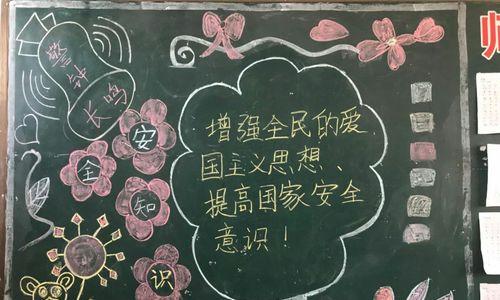 警钟
长鸣
安
全
知
识
增强全民的爱
国主义思想、
提高国家安全
意识！
师